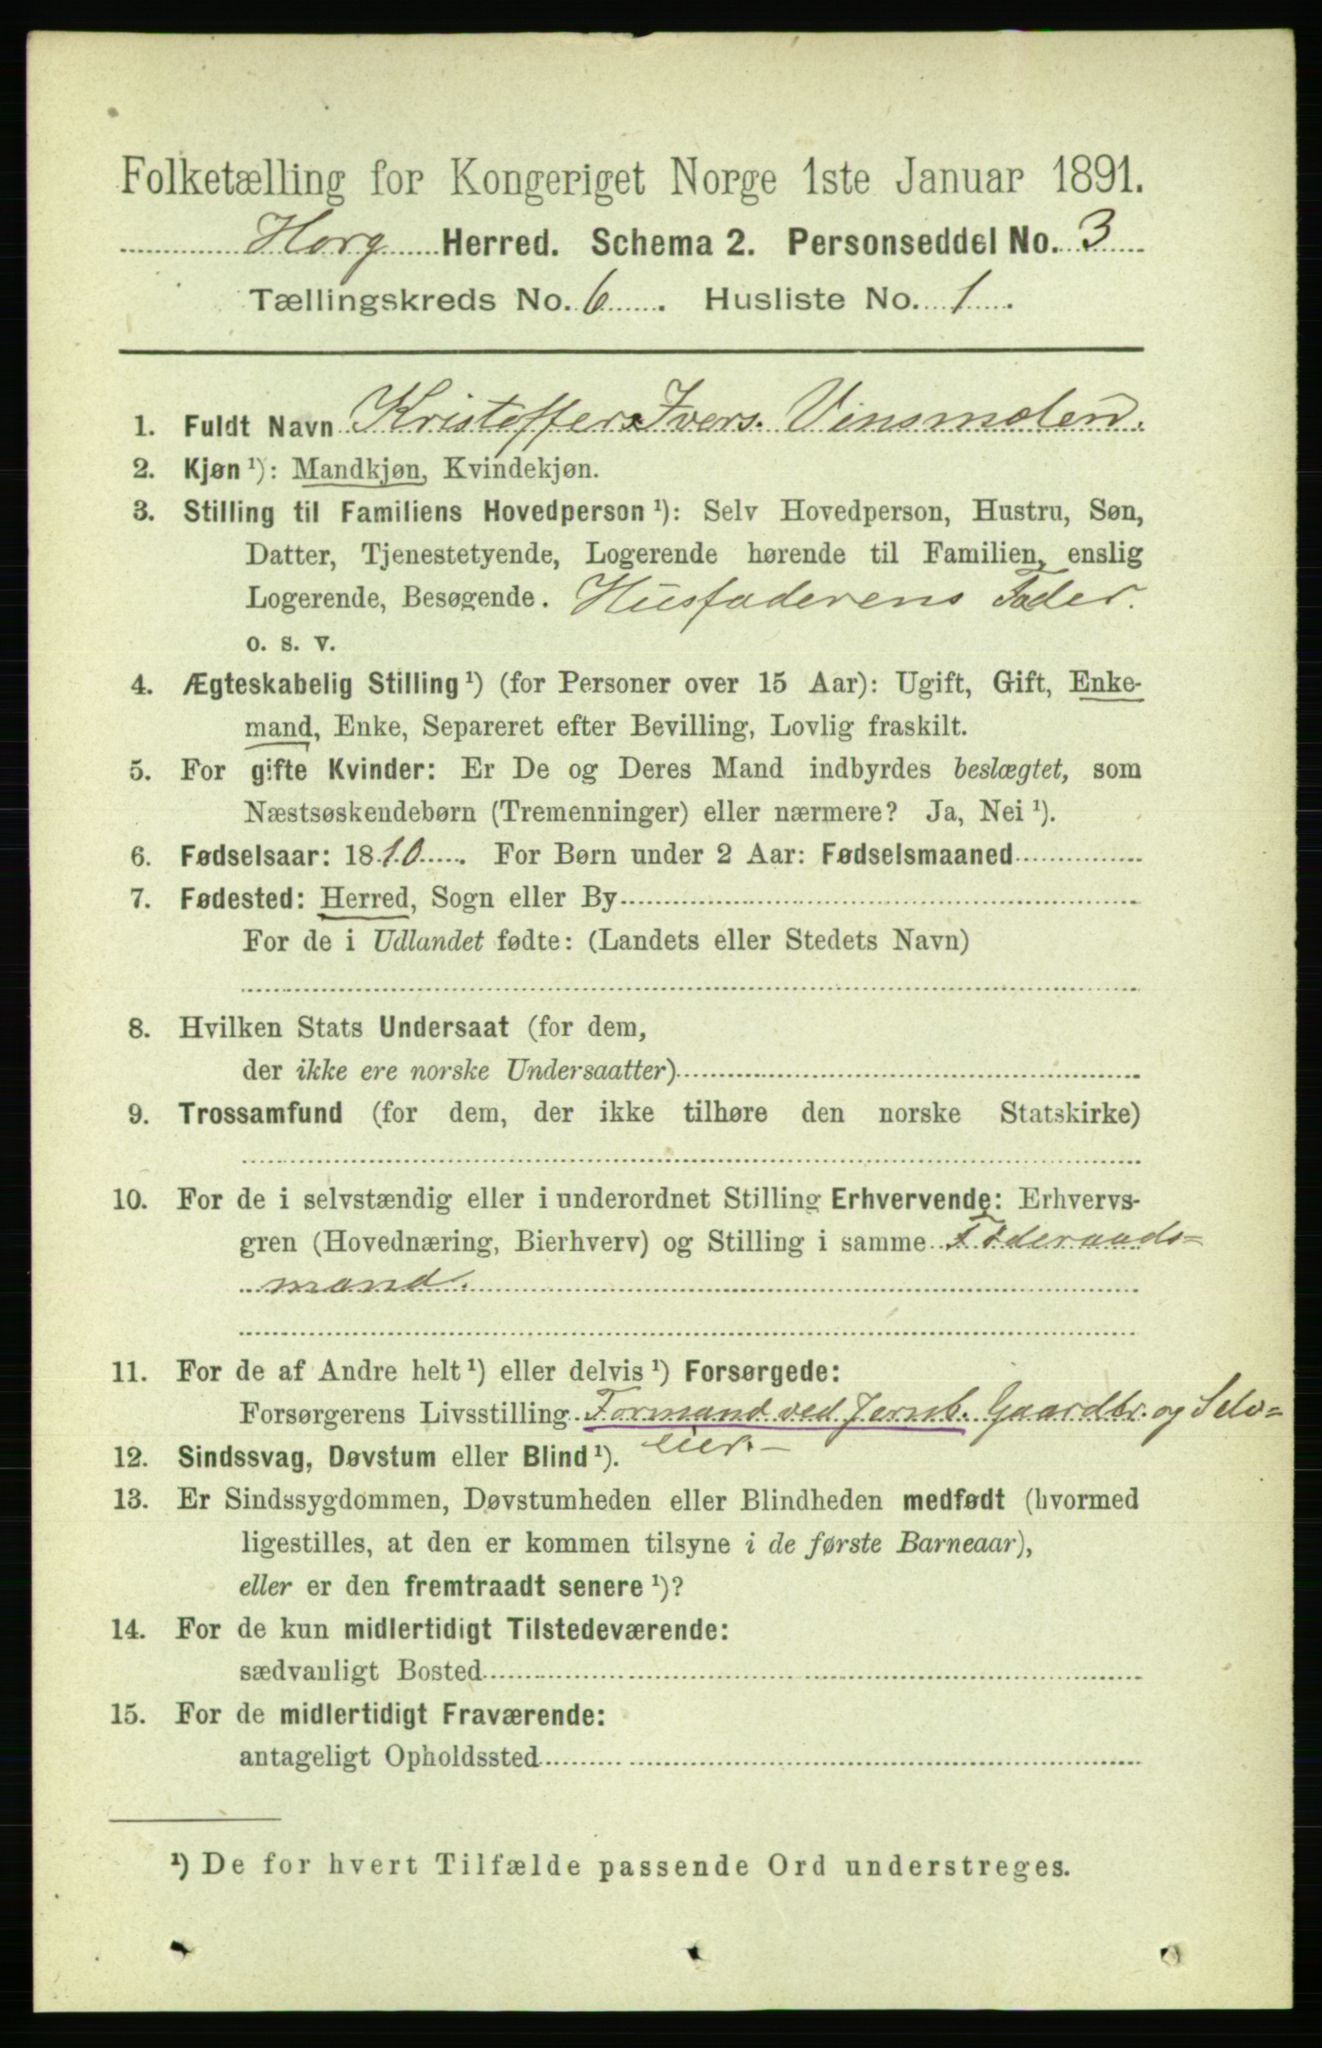 Folketælling for Kongeriget Norge 1ste Januar 1891.
Horg Herred. Schema 2. Personseddel No. 3
Tællingskreds No. 6. Husliste No. 1.
1. Fuldt Navn Kristoffer Ivers. Vinsmolen.
2. Kjøn ¹): Mandkjøn, Kvindekjøn.
3. Stilling til Familiens Hovedperson ¹): Selv Hovedperson, Hustru, Søn,
Datter, Tjenestetyende, Logerende hørende til Familien, enslig
Logerende, Besøgende. Husfaderens Fader.
o. s. v.
4. Ægteskabelig Stilling ¹) (for Personer over 15 Aar): Ugift, Gift, Enke-
mand, Enke, Separeret efter Bevilling, Lovlig fraskilt.
5. For gifte Kvinder: Er De og Deres Mand indbyrdes beslægtet, som
Næstsøskendebørn (Tremenninger) eller nærmere? Ja, Nei ¹).
6. Fødselsaar: 1810. For Børn under 2 Aar: Fødselsmaaned
7. Fødested: Herred, Sogn eller By
For de i Udlandet fødte: (Landets eller Stedets Navn)
8. Hvilken Stats Undersaat (for dem,
der ikke ere norske Undersaatter)
9. Trossamfund (for dem, der ikke tilhøre den norske Statskirke)
10. For de i selvstændig eller i underordnet Stilling Erhvervende: Erhvervs-
gren (Hovednæring, Bierhverv) og Stilling i samme Føderaads=
mand.
11. For de af Andre helt ¹) eller delvis ¹) Forsørgede:
Forsørgerens Livsstilling Formand ved Jernb. Gaardbr. og Selv=
eier.-
12. Sindssvag, Døvstum eller Blind ¹).
13. Er Sindssygdommen, Døvstumheden eller Blindheden medfødt (hvormed
ligestilles, at den er kommen tilsyne i de første Barneaar),
eller er den fremtraadt senere ¹)?
14. For de kun midlertidigt Tilstedeværende:
sædvanligt Bosted
15. For de midlertidigt Fraværende:
antageligt Opholdssted
¹) De for hvert Tilfælde passende Ord understreges.